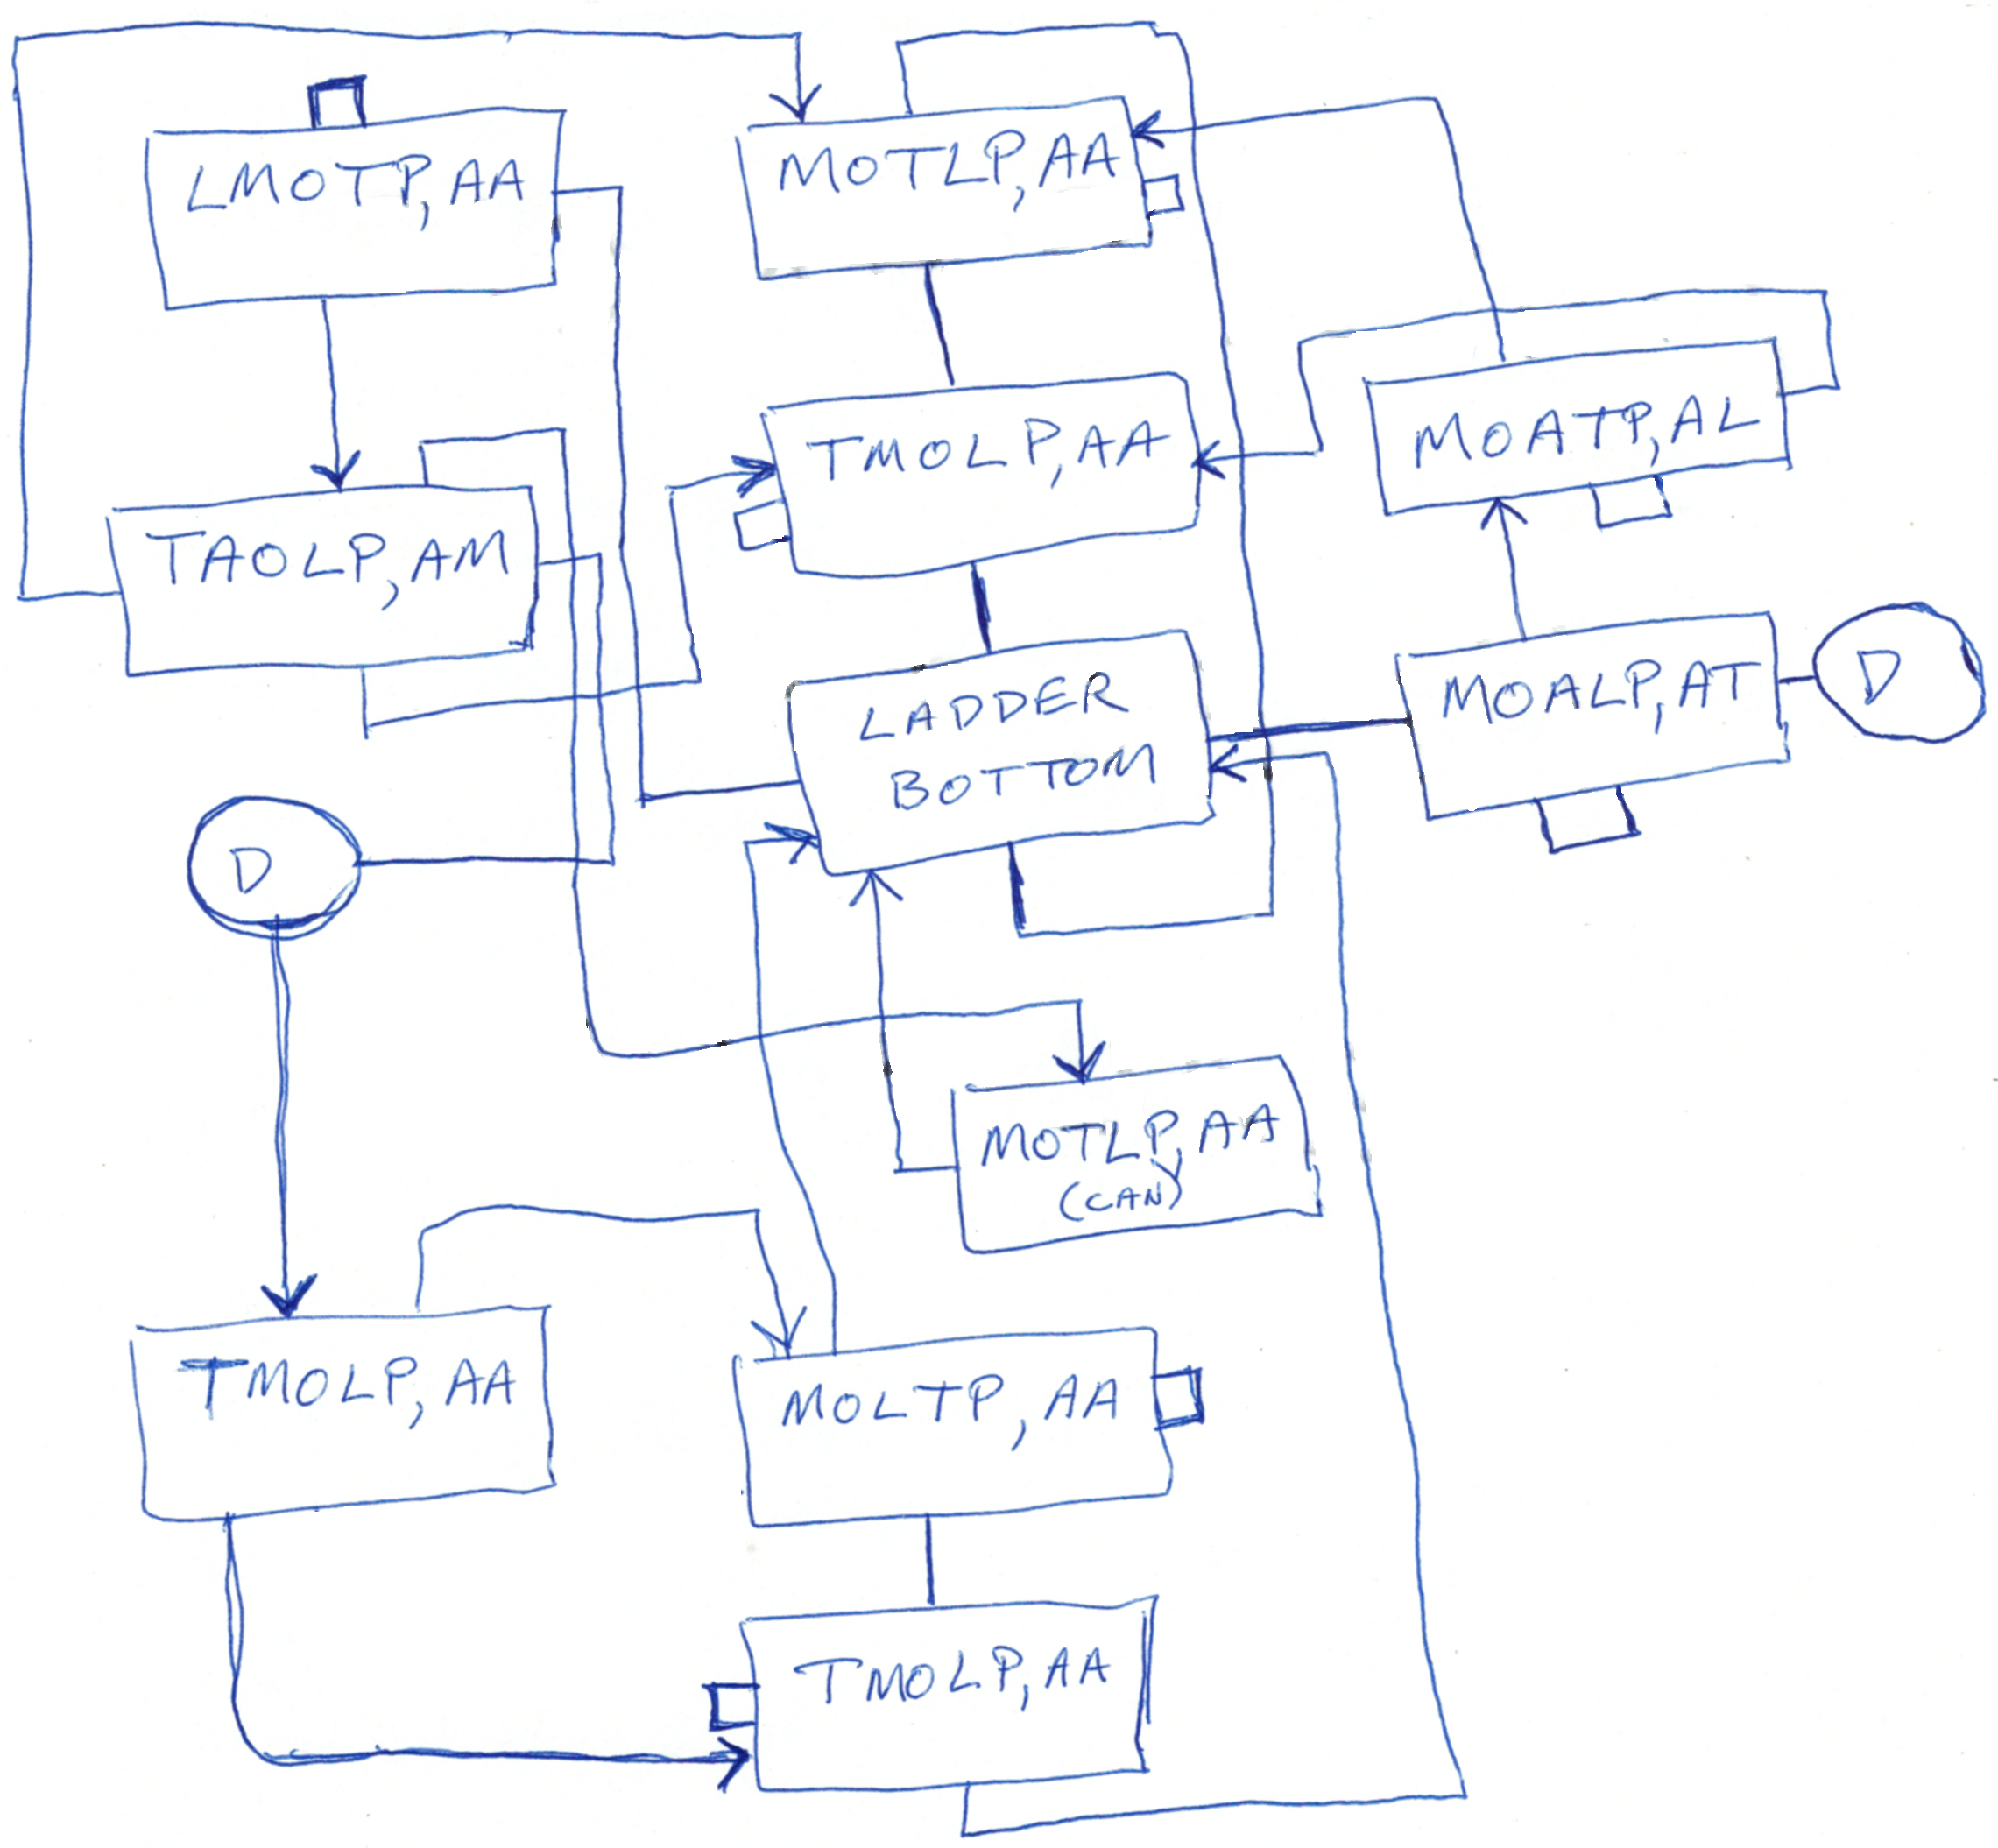 LMOTP, AA
MOTLP, AA
TAOLP, AM
TMOLP, AA
MOATP, AL
LADDER
BOTTOM
MOALP, AT
D
D
MOTLP, AA
(CAN)
TMOLP, AA
MOLTP, AA
TMOLP, AA